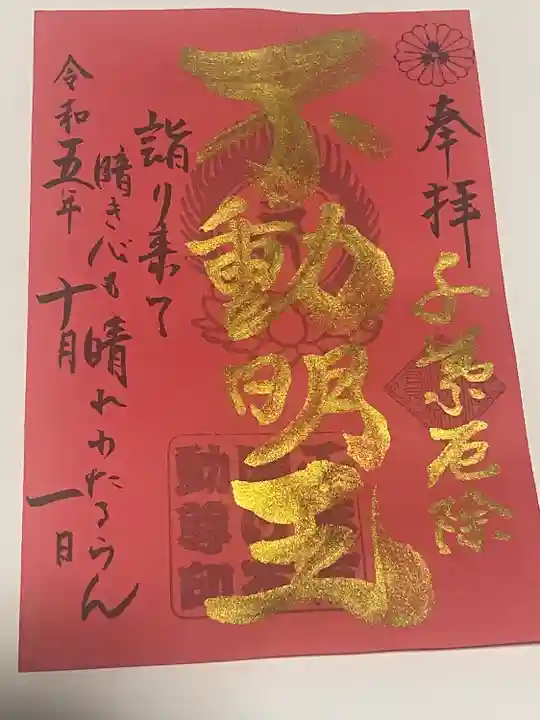 奉拝
千葉厄除
不動明王
詣り来て
暗き心も晴れわたるらん
令和五年十月一日
動尊印